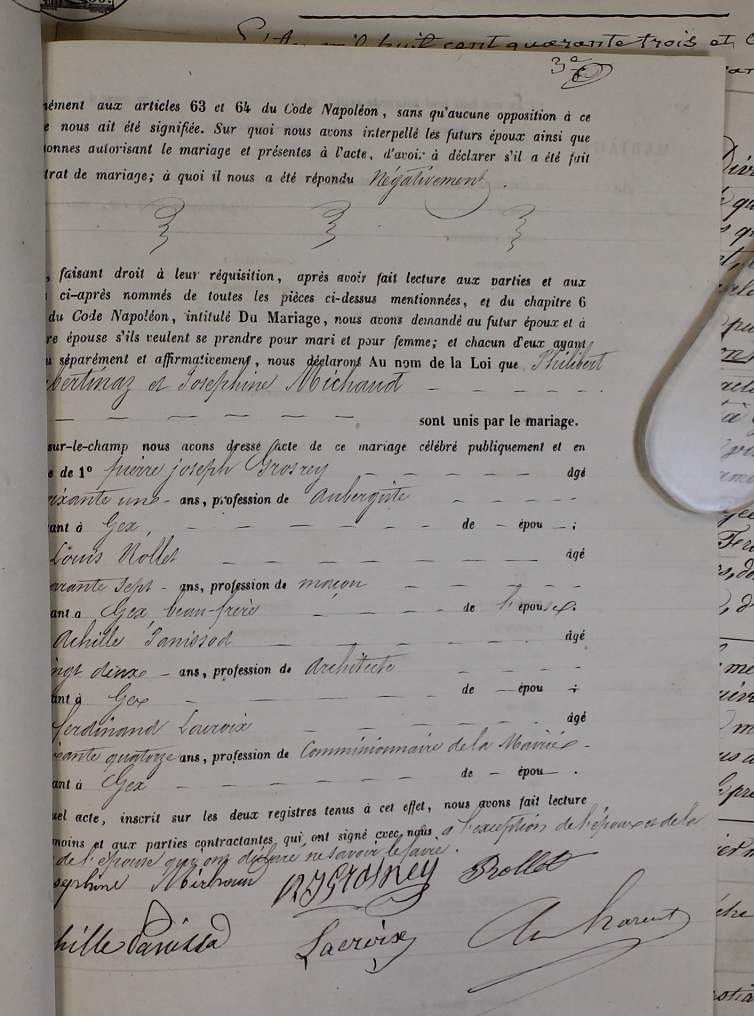 L'An mil huit cent quarante trois et
3e
ément aux articles 63 et 64 du Code Napoléon, sans qu'aucune opposition à ce
e nous ait été signifiée. Sur quoi nous avons interpellé les futurs époux ainsi que
onnes autorisant le mariage et présentes à l'acte, d'avoir à déclarer s'il a été fait
trat de mariage; à quoi il nous a été répondu Négativement.
, faisant droit à leur réquisition, après avoir fait lecture aux parties et aux
ci-après nommés de toutes les pièces ci-dessus mentionnées, et du chapitre 6
du Code Napoléon, intitulé Du Mariage, nous avons demandé au futur époux et à
re épouse s'ils veulent se prendre pour mari et pour femme; et chacun d'eux ayant
u séparément et affirmativement, nous déclarons Au nom de la Loi que Philibert
bertinaz et Josephine Michaud
sont unis par le mariage.
sur-le-champ nous avons dressé acte de ce mariage célébré publiquement et en
e de 1o pierre joseph Grosrey âgé
oixante une ans, profession de Aubergiste
ant à Gex, de - épou - ;
Louis Rollet âgé
arante sept - ans, profession de maçon
ant à Gex, beau-frère de l'épouse.
Achille Panissod âgé
ingt deux - ans, profession de Architecte
ant à Gex de - épou ;
Ferdinand Lacroix âgé
xante quatorze ans, profession de Commissionnaire de la Mairie -
ant à Gex de - épou - .
uel acte, inscrit sur les deux registres tenus à cet effet, nous avons fait lecture
moins et aux parties contractantes qui ont signé avec nous, a l'exception de l'époux et de la
de l'épouse qui ont déclaré ne savoir le faire.
sephine Michaud PJGrosrey Rollet
hille Panissod Lacroix